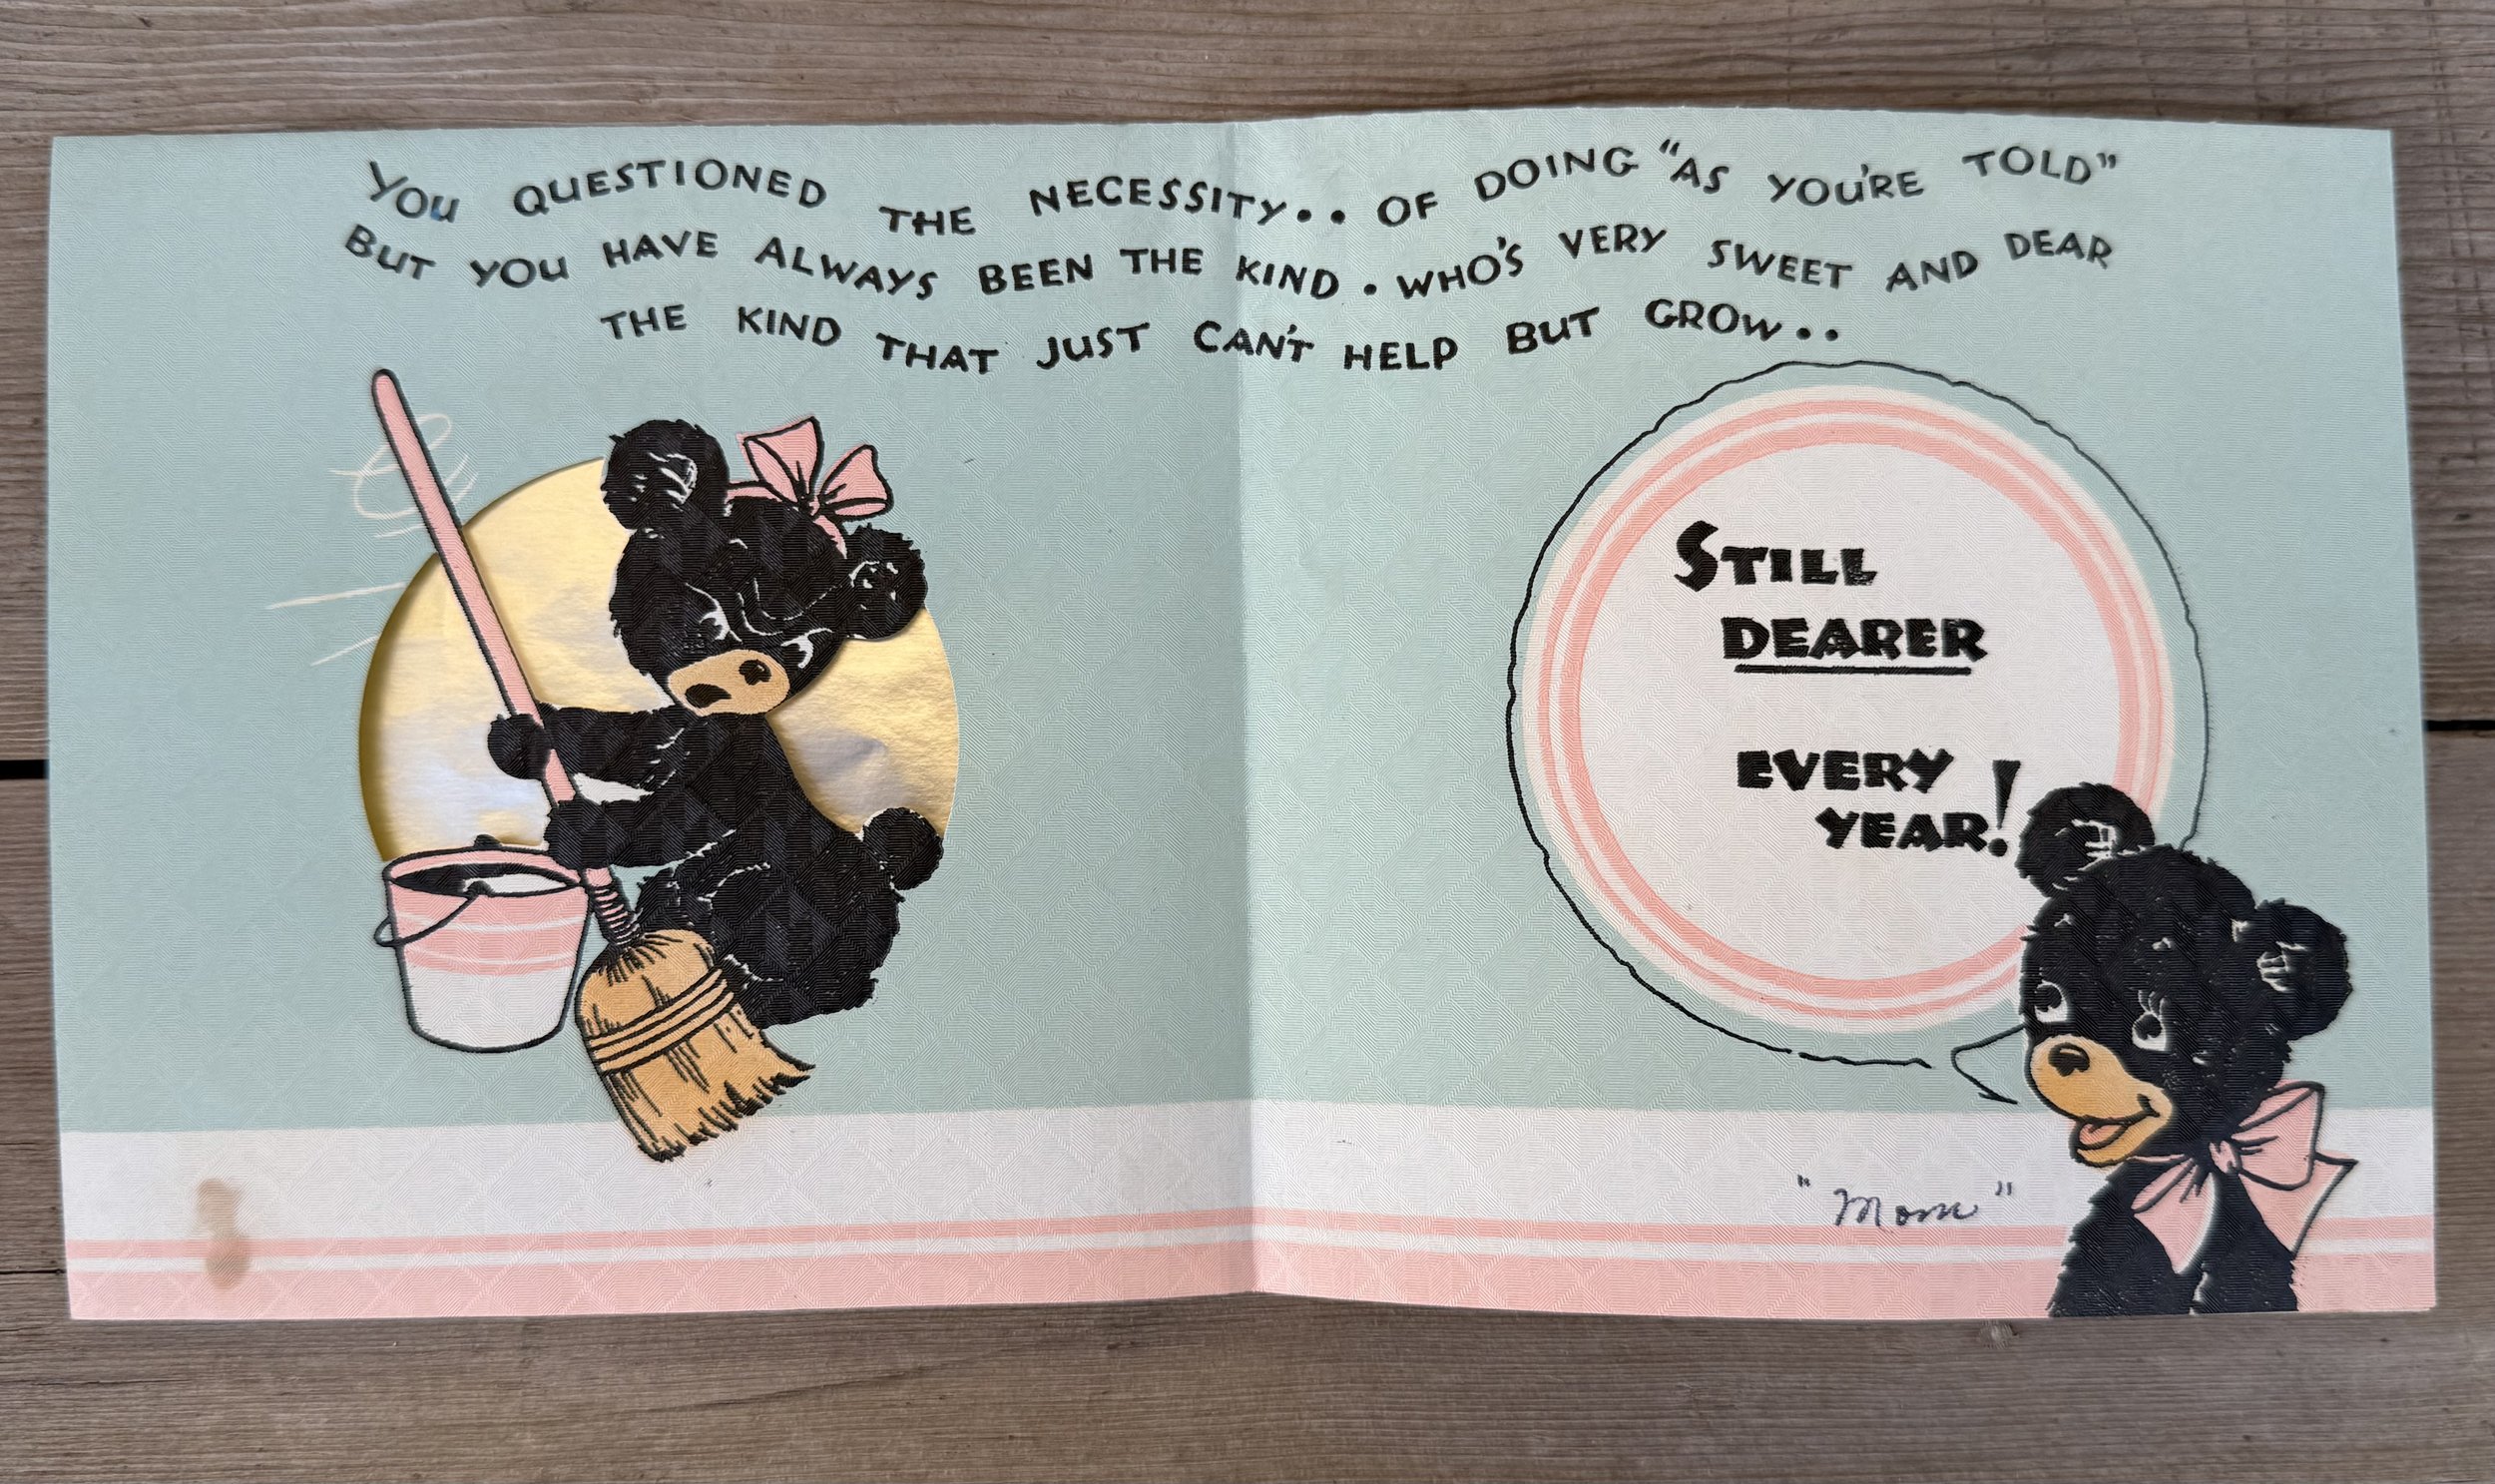 YOU QUESTIONED THE NECESSITY.. OF DOING "AS YOU'RE TOLD"
BUT YOU HAVE ALWAYS BEEN THE KIND. WHO'S VERY SWEET AND DEAR
THE KIND THAT JUST CAN'T HELP BUT GROW..
STILL
DEARER
EVERY
YEAR!
"Mom"